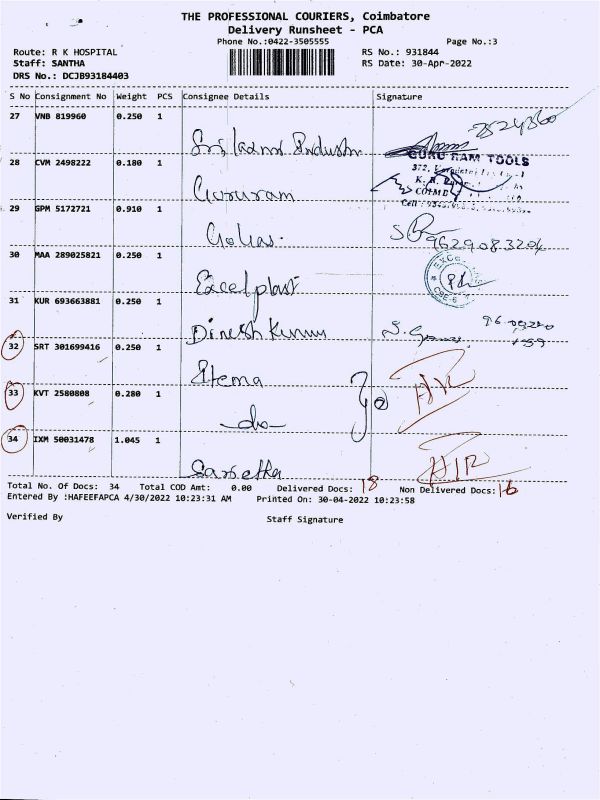 THE PROFESSIONAL COURIERS, Coimbatore
Delivery Runsheet - PCA
Phone No.:0422-3505555 Page No.:3
Route: R K HOSPITAL RS No.: 931844
Staff: SANTHA RS Date: 30-Apr-2022
DRS No.: DCJB93184403
S No Consignment No Weight PCS Consignee Details Signature
27 VNB 819960 0.250 1
28 CVM 2498222 0.180 1
GURU RAM TOOLS
372,
K. R.
Gururam
29 GPM 5172721 0.910 1
9629083204
30 MAA 289025821 0.250 1
Excel plast
31 KUR 693663881 0.250 1
Dinesh Kumar
32 SRT 301699416 0.250 1
33 KVT 2580808 0.280 1
-do-
34 IXM 50031478 1.045 1
Total No. Of Docs: 34 Total COD Amt: 0.00 Delivered Docs: 18 Non Delivered Docs: 16
Entered By :HAFEEFAPCA 4/30/2022 10:23:31 AM Printed On: 30-04-2022 10:23:58
Verified By Staff Signature